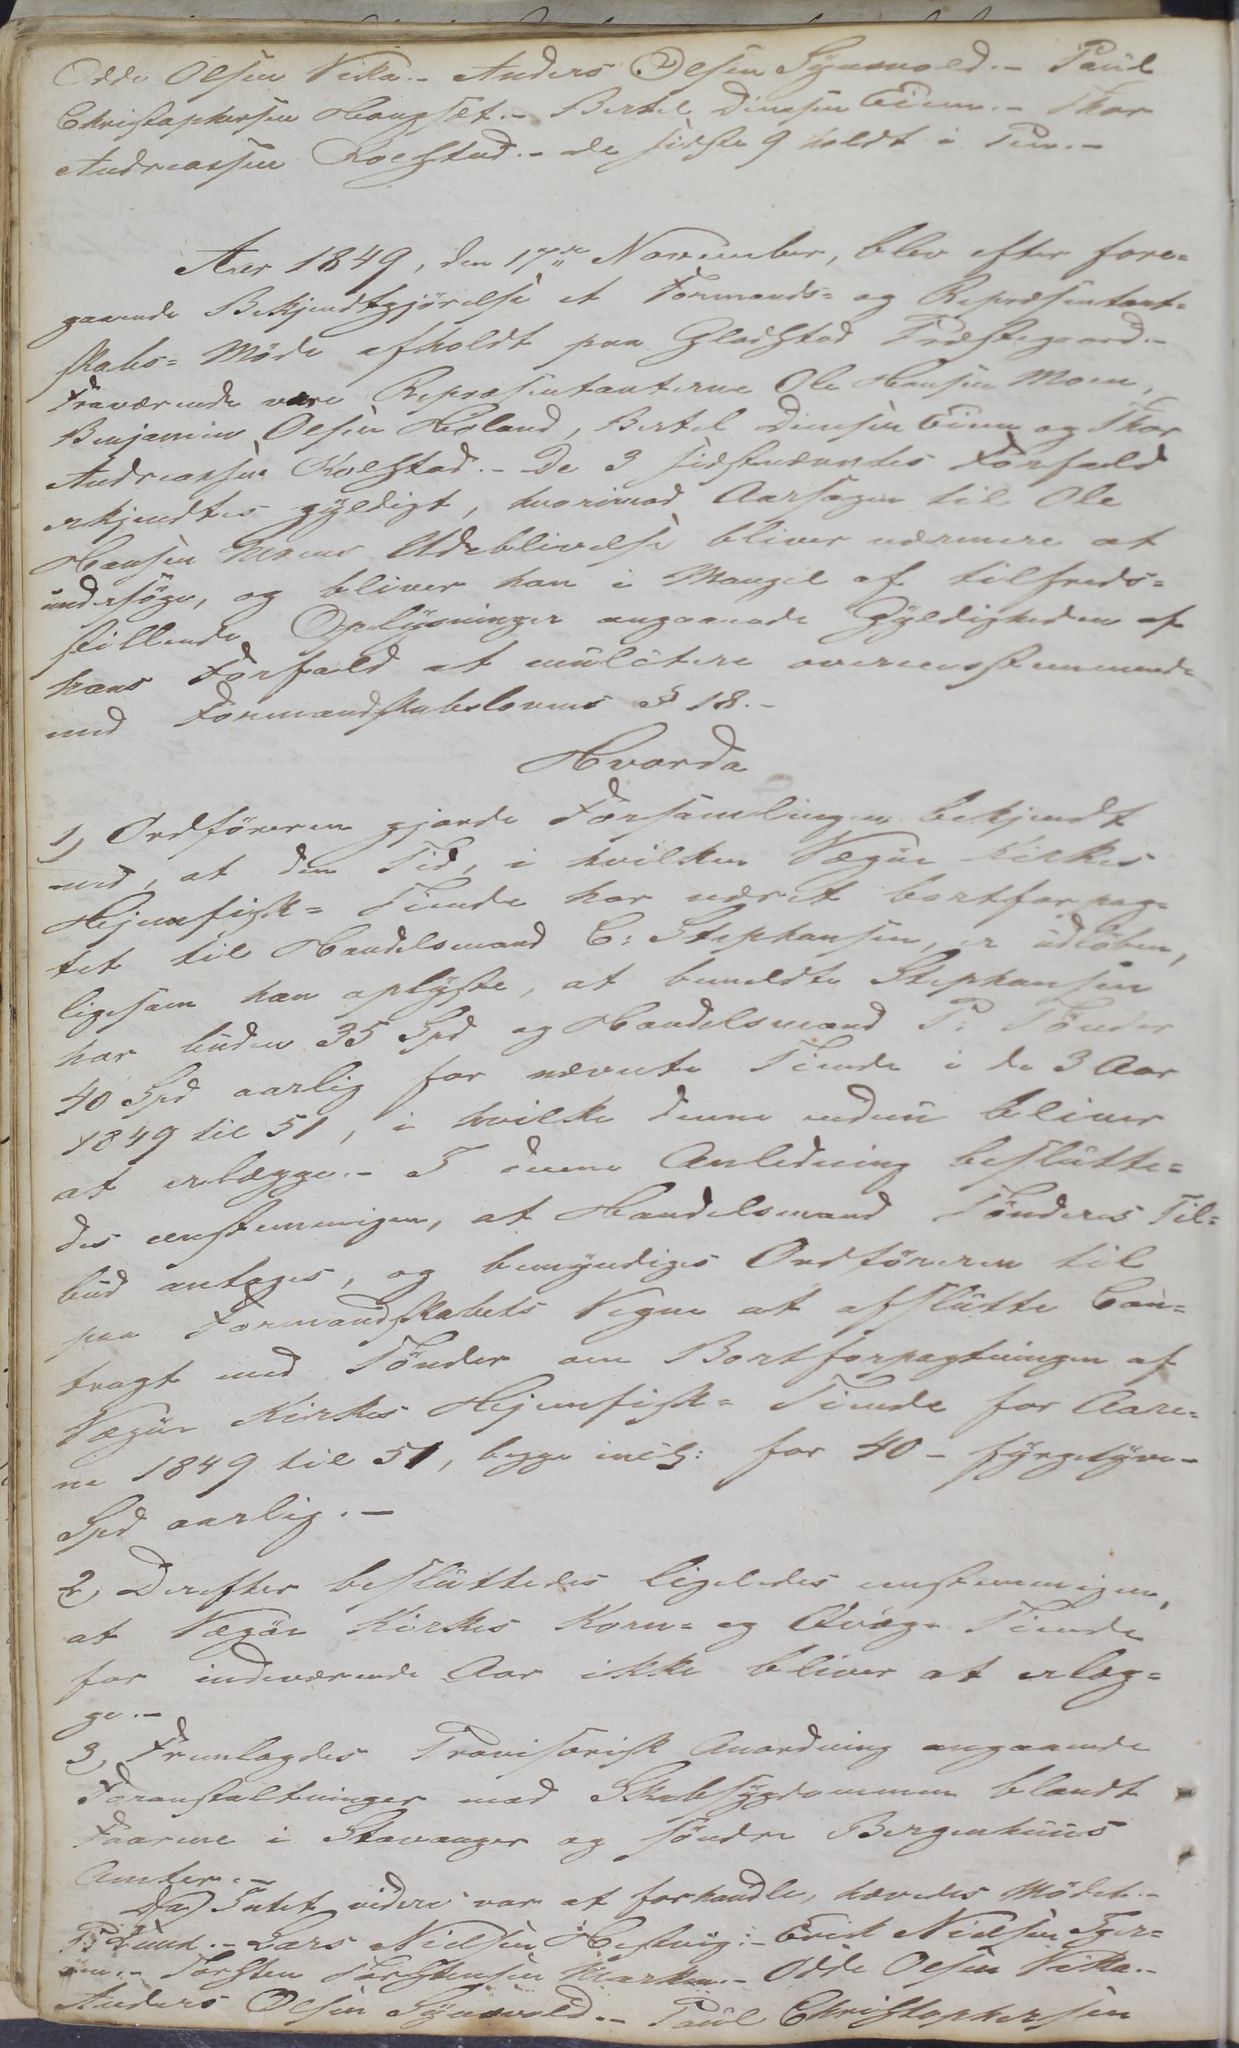 Odde Olsen Vika.- Anders Olsen Synsvold.- Paul
Christophersen Hongset.- Bertel Dinesen Eien.- Thor
Andreassen Kolstad.- de sidste 9 holdt i Pen.-
Aar 1849, den 17de November, blev efter fore-
gaaende Bekjendtgjörelse et Formands- og Repræsentant-
skabs- Møde afholdt paa Gladstad Præstegaard.-
Fraværende vare Repræsentanterne Ole Hansen Moen,
Benjamin Olsen Høland, Bertel Dinesen Eien og Thor
Andreassen Kolstad.- De 3 sidstnævntes Forfald
erkjendtes gyldigt, hvorimod Aarsagen til Ole
Hansen Moens Udeblivelse bliver nærmere at
undersøge, og bliver han i Mangel af tilfreds-
stillende Oplysninger angaaende Gyldigheden af
hans Forfald at mulctere overensstemmende
med Formandskabslovens § 18.-
Hvorda
1, Ordføreren gjorde Forsamlingen bekjendt
med, at den Tid, i hvilken Vegøe Kirkes
Hjemfisk- Tiende har været bortforpag-
tet til Handelsmand C: Stephansen, er udløben,
ligesom han oplyste, at bemeldte Stephansen
har buden 35 Spd og Handelsmand P: Tönder
40 Spd aarlig for nævnte Tiende i de 3 Aar
1849 til 51, i hvilke denne endnu bliver
at erlægge.- I denne Anledning beslutte-
des eenstemmigen, at Handelsmand Tönders Til-
bud antages, og bemyndiges Ordføreren til
paa Formandskabets Vegne at afslutte Con-
tragt med Tönder om Bortforpagtningen af
Vegøe Kirkes Hjemfisk- Tiende for Aare-
ne 1849 til 51, begge incl: for 40 - fyrgetyve-
Spd aarlig.-
2, Derefter besluttedes ligeledes eenstemmigen,
at Vegøe Kirkes Korn- og Qvæg- Tiende
for indeværende Aar ikke bliver at erlæg-
ge.-
3, Fremlagdes Provisorisk Anordning angaaende
Foranstaltninger mod Skabsygdommen blandt
Faarene i Stavanger og søndre Bergenhuus
Amter.-
Da Intet videre var at forhandle, hævedes Mødet.-
P: Lund.- Lars Nielsen Hestvig.- Erik Nielsen
Torsten Torstensen Marken.- Odde Olsen Vika.-
Anders Olsen Synsvold.- Paul Christophersen